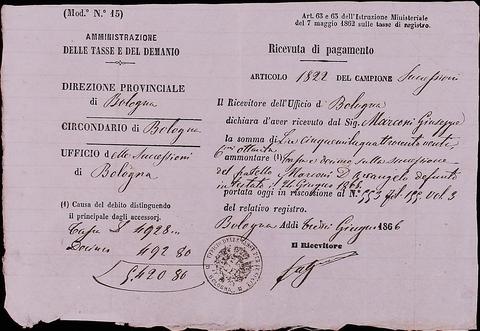 (Mod.° N.° 15)
AMMINISTRAZIONE
DELLE TASSE E DEL DEMANIO
DIREZIONE PROVINCIALE
di Bologna
CIRCONDARIO di Bologna
UFFICIO delle Successioni
di Bologna
(1) Causa del debito distinguendo
il principale dagli accessorj.
Tassa L 4928 —
Decimo 492 80
5420 80
Art. 63 e 65 dell'Istruzione Ministeriale
del 7 maggio 1862 sulle tasse di registro.
Ricevuta di pagamento
ARTICOLO 1822 DEL CAMPIONE Successioni
Il Ricevitore dell'Ufficio di Bologna
dichiara d'aver ricevuto dal Sig. Marconi Giuseppe
la somma di Lire Cinquemilaquattrocento venti
ottanta
ammontare (1) tassa e decimo sulla successione
del fratello Marconi D. Arcangelo defunto
intestato il 26 Giugno 1865
portata oggi in riscossione al N.° 553 fol. 153 vol. 3
del relativo registro.
Bologna Addì tredici Giugno 1866
Il Ricevitore